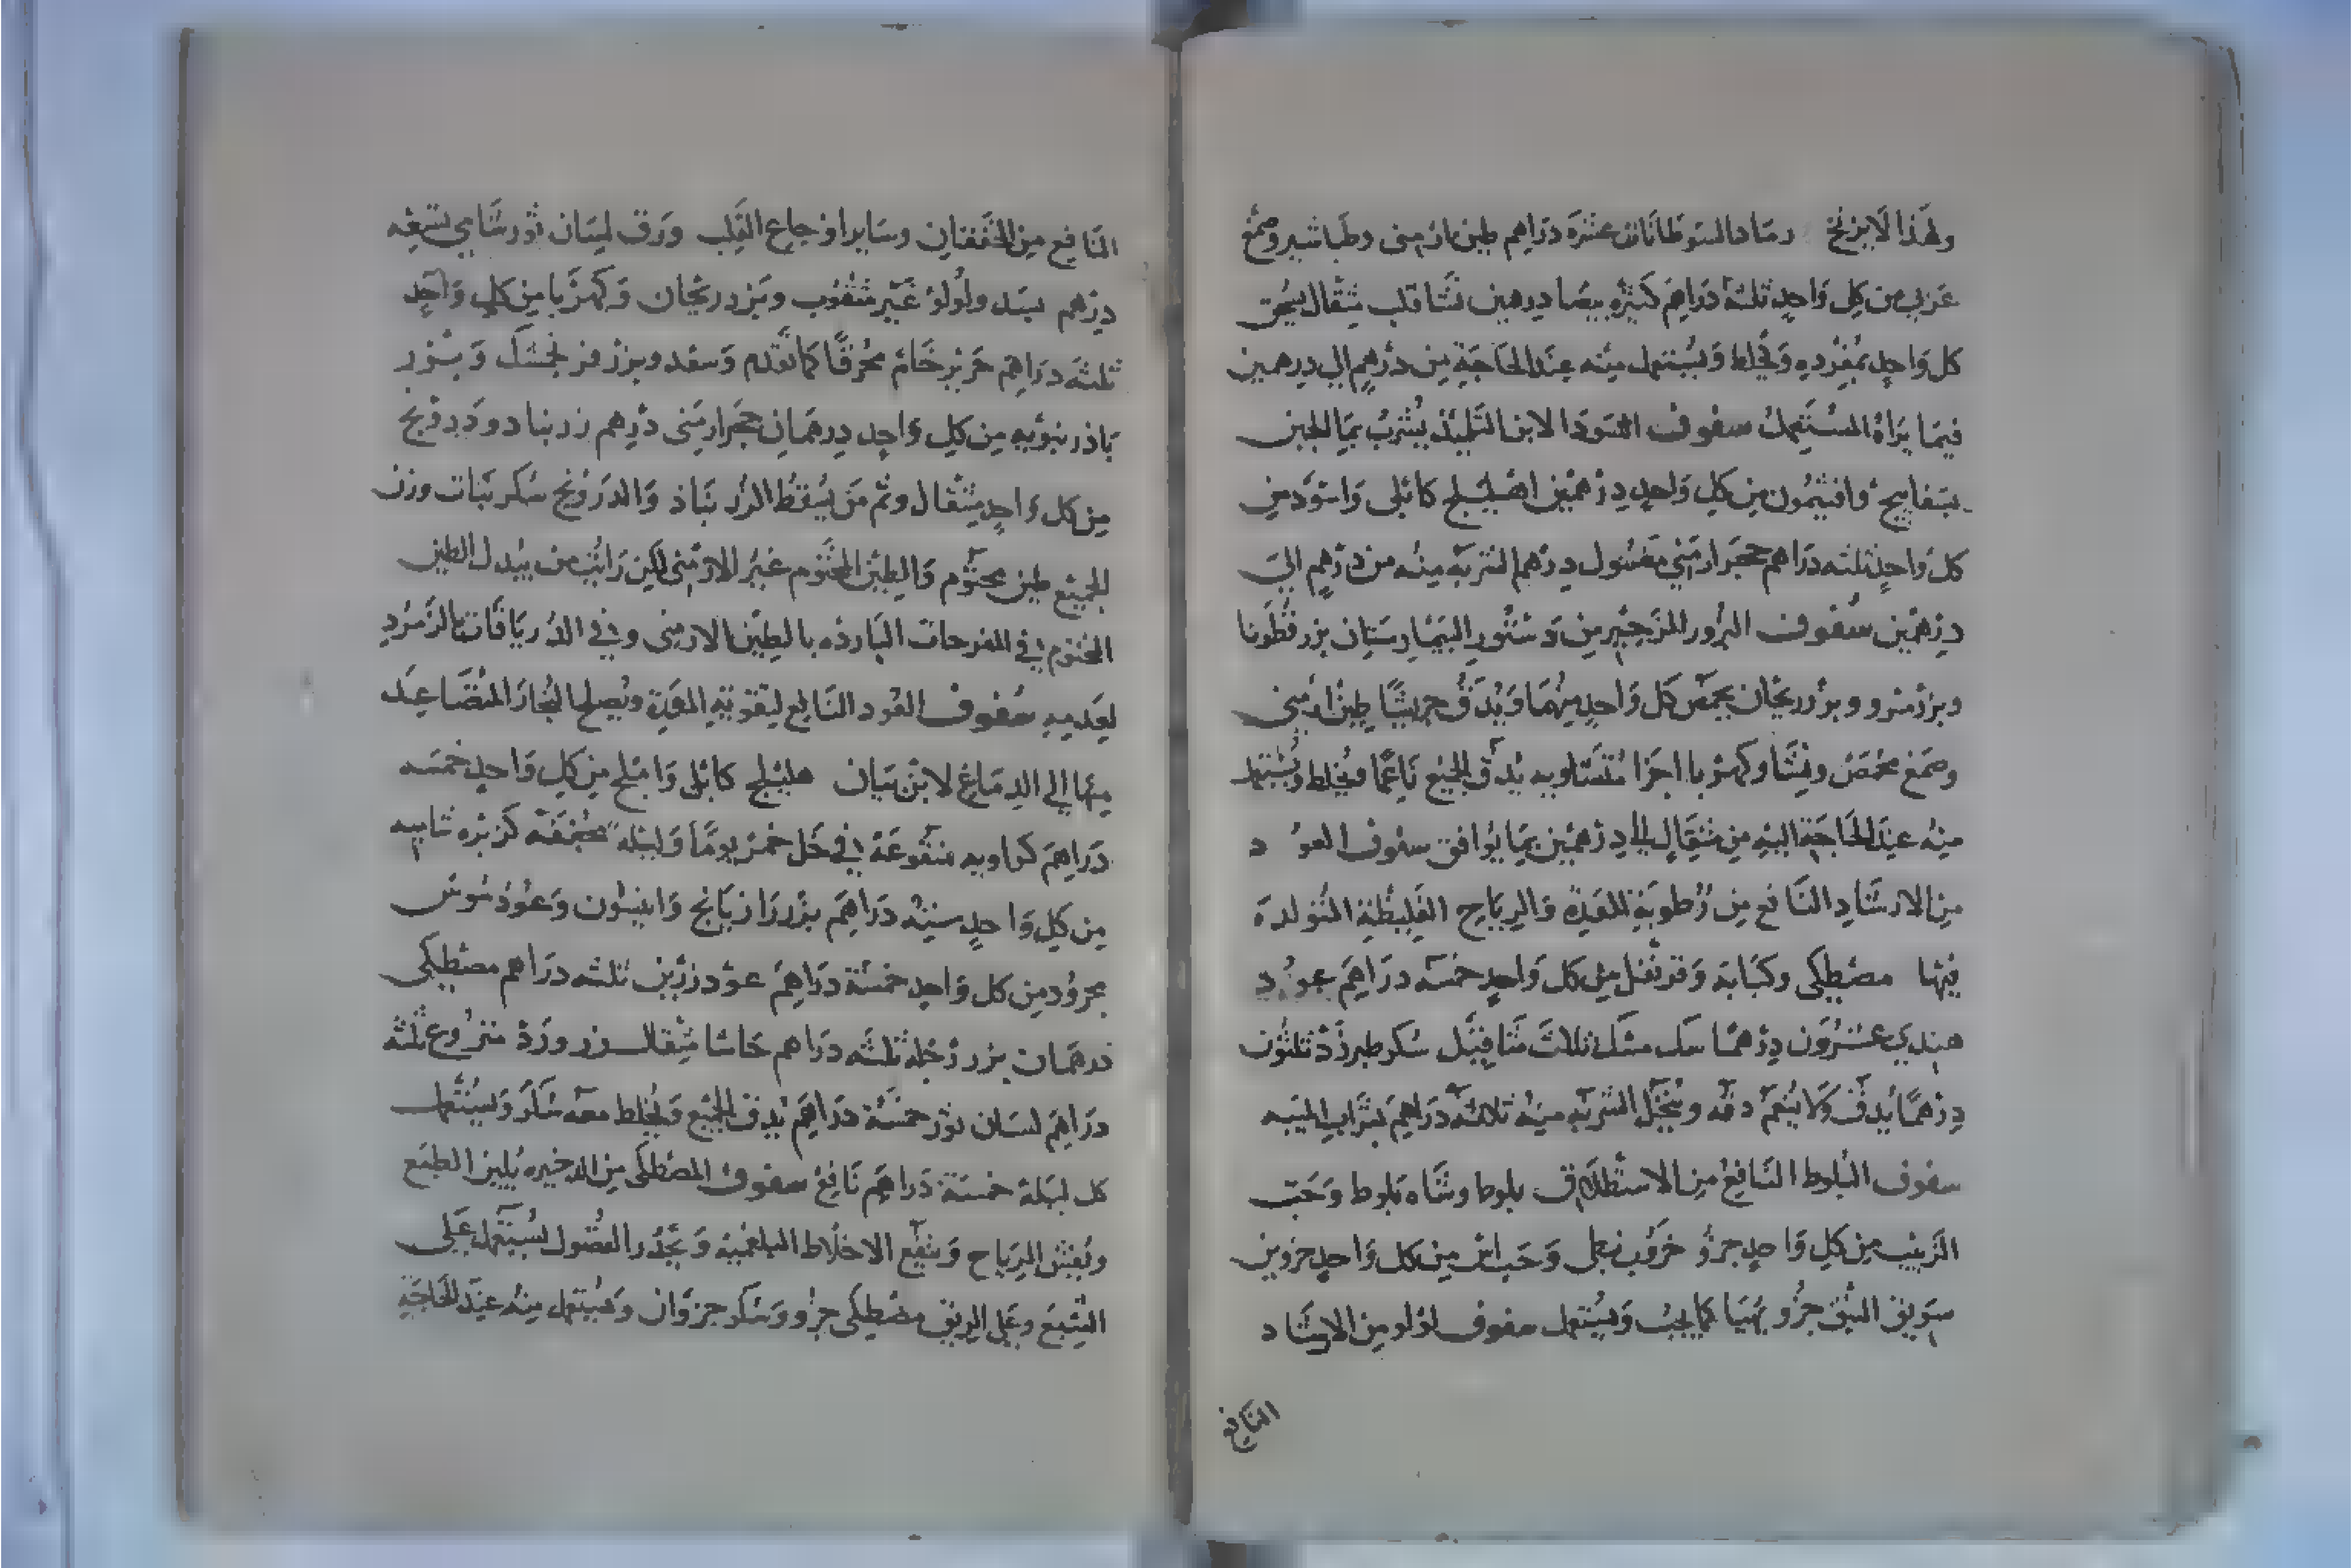 ولهذا لا يزنخ رماد السرطانات عشره دراهم طين ارمنى وطباشير وصمغ
عربى من كل واحد ثلثة دراهم كثيره بيضا درهمين نشا قلب مثقال يسحق
كل واحد بمفرده ويخلط ويستعمل منه عند الحاجة من درهم الى درهمين
فيما يراه المستعمل سفوف السودا لابن التلميذ يشرب بما الجبن
بسفايج وافتيمون من كل واحد درهمين اهليلج كابلى واسود من
كل واحد ثلثه دراهم حجر ارمني مغسول درهم الشربه منه من درهم الى
درهمين سفوف البزور المزحير من دستور البيمارستان بزر قطونا
وبزر مرو وبزر ريحان يحمص كل واحد منهما ويدق جريشا طين ارمنى
وصمغ محمص ونشا وكهربا اجزا متساويه يدق الجميع ناعما ويخلط ويستعمل
منه عند الحاجة اليه من مثقال الى درهمين بما يوافق سفوف العود
من الارشاد النافع من رطوبة المعدة والرياح الغليظة المتولده
فيها مصطكى وكبابه وقرنفل من كل واحد خمسه دراهم عود
هندي عشرون درهما سك مسك ثلاث مثاقيل سكر طبرزد ثلثون
درهما يدق ولا ينعم دقه وينخل الشربه منه ثلاثه دراهم بشراب الميبه
سفوف البلوط النافع من الاستطلاق بلوط وشاه بلوط وحب
الزبيب من كل واحد جزؤ خرنوب نبطى وحب اس من كل واحد جزوين
سويق النبق جزؤ يهيا كما يجب ويستعمل سفوف لولو من الارشاد
النافع
النافع من الخفقان وساير اوجاع القلب ورق لسان ثور شامي تسعه
درهم بسد ولولو غير مثقوب وبزر ريحان وكهربا من كل واحد
ثلثه دراهم حرير خام محرقا كما تقدم وسعد وبزر فرنجمسك وبزر
باذرنبويه من كل واحد درهمان حجر ارمنى درهم زرنباد ودرونج
من كل واحد مثقال وثم من يسقط الزرنباد والدرونج سكر نبات وزن
الجميع طين مختوم والطين المختوم غير الارمنى لكن رايت من يبدل الطين
المختوم في المفرحات البارده بالطين الارمنى وفي الدرياقات بالزمرد
لعدمه سفوف العود النافع لتقوية المعدة ويصلح البخار المتصاعد
منها الى الدماغ لابن بيان هليلج كابلى واملج من كل واحد خمسه
دراهم كراويه منقوعة في خل خمر يوما وليله مجففه كزبره شاميه
من كل واحد سته دراهم بزر رازيانج وانيسون وعود سوس
مجرود من كل واحد خمسة دراهم عود زرين ثلثه دراهم مصطكى
درهمان بزر رجله ثلثه دراهم حاشا مثقال زر وردة منزوع ثلثه
دراهم لسان ثور خمسة دراهم يدق الجميع ويخلط معه سكر ويستعمل
كل ليلة خمسة دراهم نافع سفوف المصطكى من الذخيره يلين الطبع
ويفش الرياح وينفع الاخلاط البلغميه ويحدر الفضول يستعمل على
الشبع وعلى الريق مصطكى جزو وسكر جزوان ويستعمل منه عند الحاجة